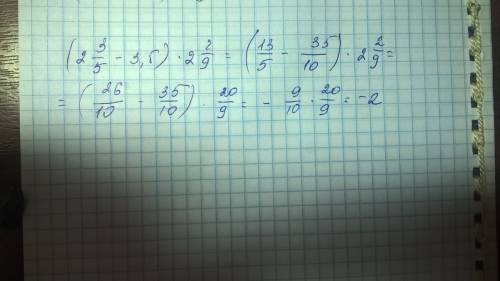 (2 3/5 - 3,5) · 2 2/9 = (13/5 - 35/10) · 2 2/9 =
= (26/10 - 35/10) · 20/9 = - 9/10 · 20/9 = -2